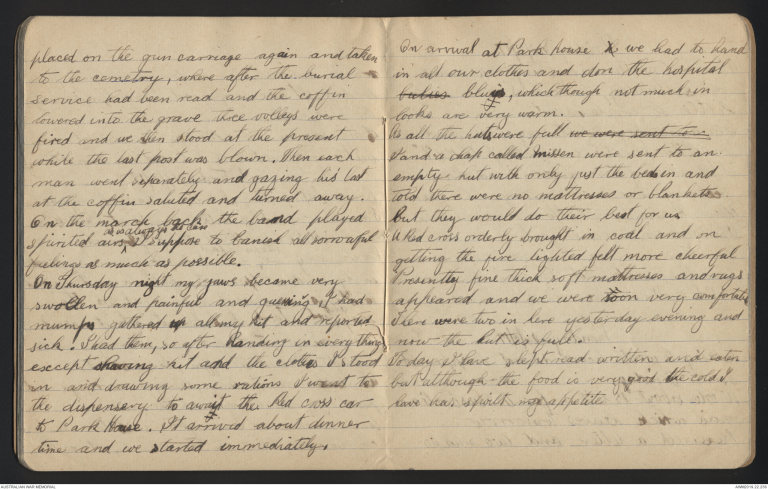 placed on the gun carriage again and taken
to the cemetry, where after the burial
service had been read and the coffin
lowered into the grave three volleys were
fired and we then stood at the present
while the last post was blown. Then each
man went separately and gazing his last
at the coffin saluted and turned away.
On the march back the band played
as is always the case
spirited airs, I suppose to banish all sorrowful
feelings as much as possible.
On Thursday night my jaws became very
swollen and painful and guessing I had
mumps gathered up all my kit and reported
sick. I had them, so after handing in everything
except shaving kit and the clothes I stood
in and drawing some rations I went to
the dispensery to await the Red cross car
to Park House. It arrived about dinner
time and we started immediately.
On arrival at Park house we had to hand
in all our clothes and don the hospital
blues, which though not much in
looks are very warm.
As all the huts were full we were sent to a
I and a chap called Missen were sent to an
empty hut with only just the beds in and
told there were no mattresses or blankets
but they would do their best for us
A Red cross orderly brought in coal and on
getting the fire lighted felt more cheerful
Presently fine thick soft mattresses and rugs
appeared and we were soon very comfortable
There were two in here yesterday evening and
now the hut is full.
Today I have slept read written and eaten
but although the food is very good the cold I
have has spoilt my appetite
AUSTRALIAN WAR MEMORIAL